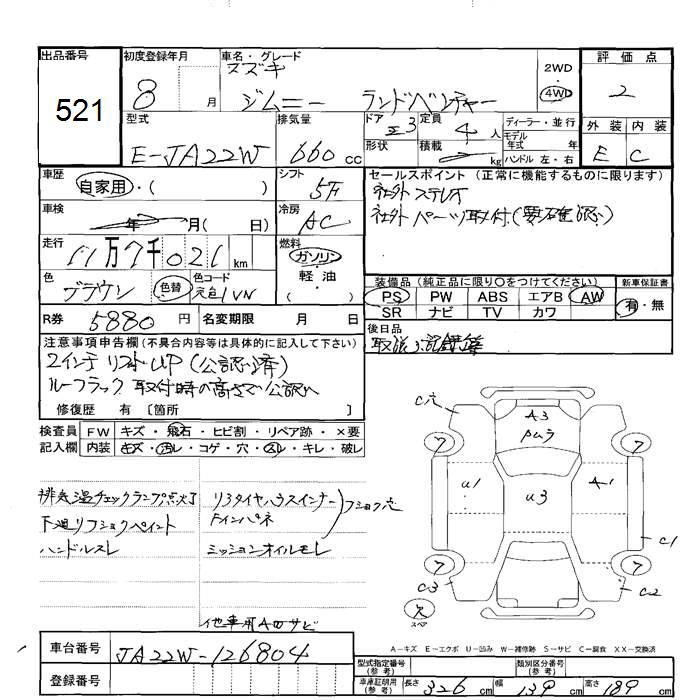 出品番号 初度登録年月 車名・グレード 評価点
521 8 月 スズキ 2WD 2
ジムニー ランドベンチャー 4WD
型式 排気量 ドア 定員 ディーラー・並行 外装 内装
E-JA22W 660 cc 3 4人 モデル年式 年 E C
形状 積載 kg ハンドル 左・右
車歴 自家用・( ) シフト 5F セールスポイント (正常に機能するものに限ります)
車検 年 月 ( 日) 冷房 AC 社外ステレオ
社外パーツ取付(要確認)
走行 11万7千021 km 燃料 ガソリン 軽・油 ( )
色 ブラウン 色替 色コード 元色1VN
装備品 (純正品に限り○をつけてください) 新車保証書
PS PW ABS エアB AW 有・無
SR ナビ TV カワ
R券 5880 円 名変期限 月 日 後日品
注意事項申告欄(不具合内容等は具体的に記入して下さい) 取説 記録簿
2インチリフトUP (公認済)
ルーフラック取付時の高さで公認
修復歴 有 〔箇所 〕
検査員 FW キズ・飛石・ヒビ割・リペア跡・×要
記入欄 内装 キズ・ヨゴレ・コゲ・穴・スレ・キレ・破レ
排気温チェックランプ点灯 リヤタイヤハウスインナー
下廻リフショクペイント Fインパネ フショク穴
ハンドルスレ ミッションオイルモレ
他車用 サビ
C穴 A3 ムラ
フ フ
U1 U3 A-1
C1
フ フ
C3 C2
スペア
A-キズ E-エクボ U-凹み W-補修跡 S-サビ C-腐食 XX-交換済
車台番号 JA22W-126804
登録番号
型式指定番号(参考) 類別区分番号(参考)
車庫証明用(参考) 長さ 326 cm 幅 139 cm 高さ 189 cm